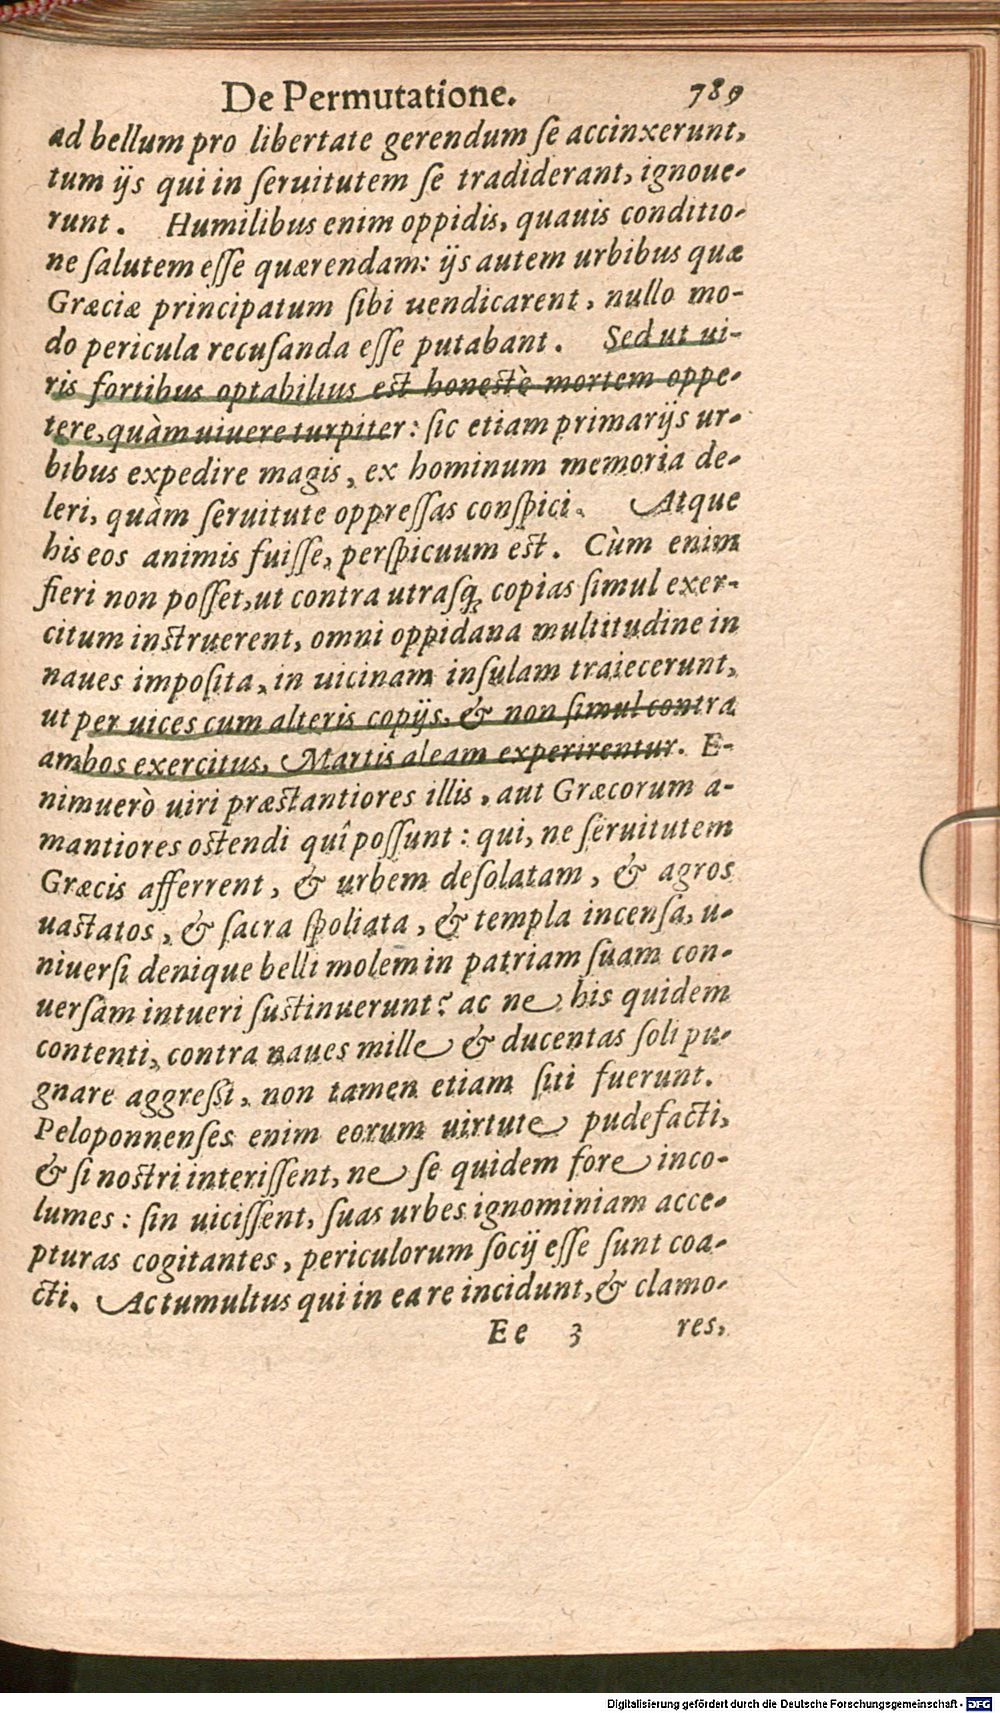 De Permutatione. 789
ad bellum pro libertate gerendum ſe accinxerunt,
tum ijs qui in ſeruitutem ſe tradiderant, ignoue-
runt. Humilibus enim oppidis, quauis conditio-
ne ſalutem eſſe quærendam: ijs autem urbibus quæ
Græciæ principatum ſibi uendicarent, nullo mo-
do pericula recuſanda eſſe putabant. Sed ut ui-
ris fortibus optabilius est honestè mortem oppe-
tere, quàm uiuere turpiter: ſic etiam primarijs ur-
bibus expedire magis, ex hominum memoria de-
leri, quàm ſeruitute oppreſſas conſpici. Atque
his eos animis fuiſſe, perſpicuum est. Cùm enim
fieri non poſſet, ut contra utraſq; copias ſimul exer-
citum instruerent, omni oppidana multitudine in
naues impoſita, in uicinam inſulam traiecerunt,
ut per uices cum alteris copijs, & non ſimul contra
ambos exercitus, Martis aleam experirentur. E-
nimuerò uiri præstantiores illis, aut Græcorum a-
mantiores ostendi quî poſſunt: qui, ne ſeruitutem
Græcis afferrent, & urbem deſolatam, & agros
uastatos, & ſacra ſpoliata, & templa incenſa, u-
niuerſi denique belli molem in patriam ſuam con-
uerſam intueri ſustinuerunt? ac ne his quidem
contenti, contra naues mille & ducentas ſoli pu-
gnare aggreſſi, non tamen etiam ſiti fuerunt.
Peloponnenſes enim eorum uirtute pudefacti,
& ſi nostri interiſſent, ne ſe quidem fore inco-
lumes: ſin uiciſſent, ſuas urbes ignominiam acce-
pturas cogitantes, periculorum ſocij eſſe ſunt coa-
cti. Ac tumultus qui in ea re incidunt, & clamo-
Ee 3 res,
Digitalisierung gefördert durch die Deutsche Forschungsgemeinschaft - DFG